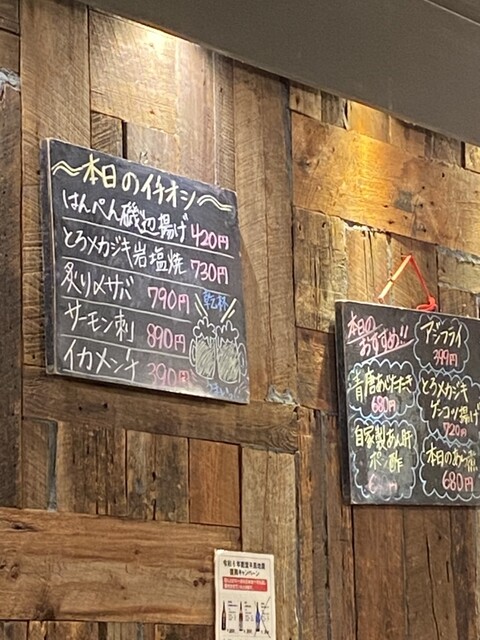 〜本日のイチオシ〜
はんぺん磯辺揚げ 420円
とろメカジキ岩塩焼 730円
炙り〆サバ 790円
乾杯
サーモン刺 890円
イカメンチ 390円
本日の
おすすめ!!
アジフライ
399円
青唐あじたたき
680円
とろメカジキ
ゲンコツ揚げ
720円
自家製あん肝
ポン酢
本日のあら煮
680円